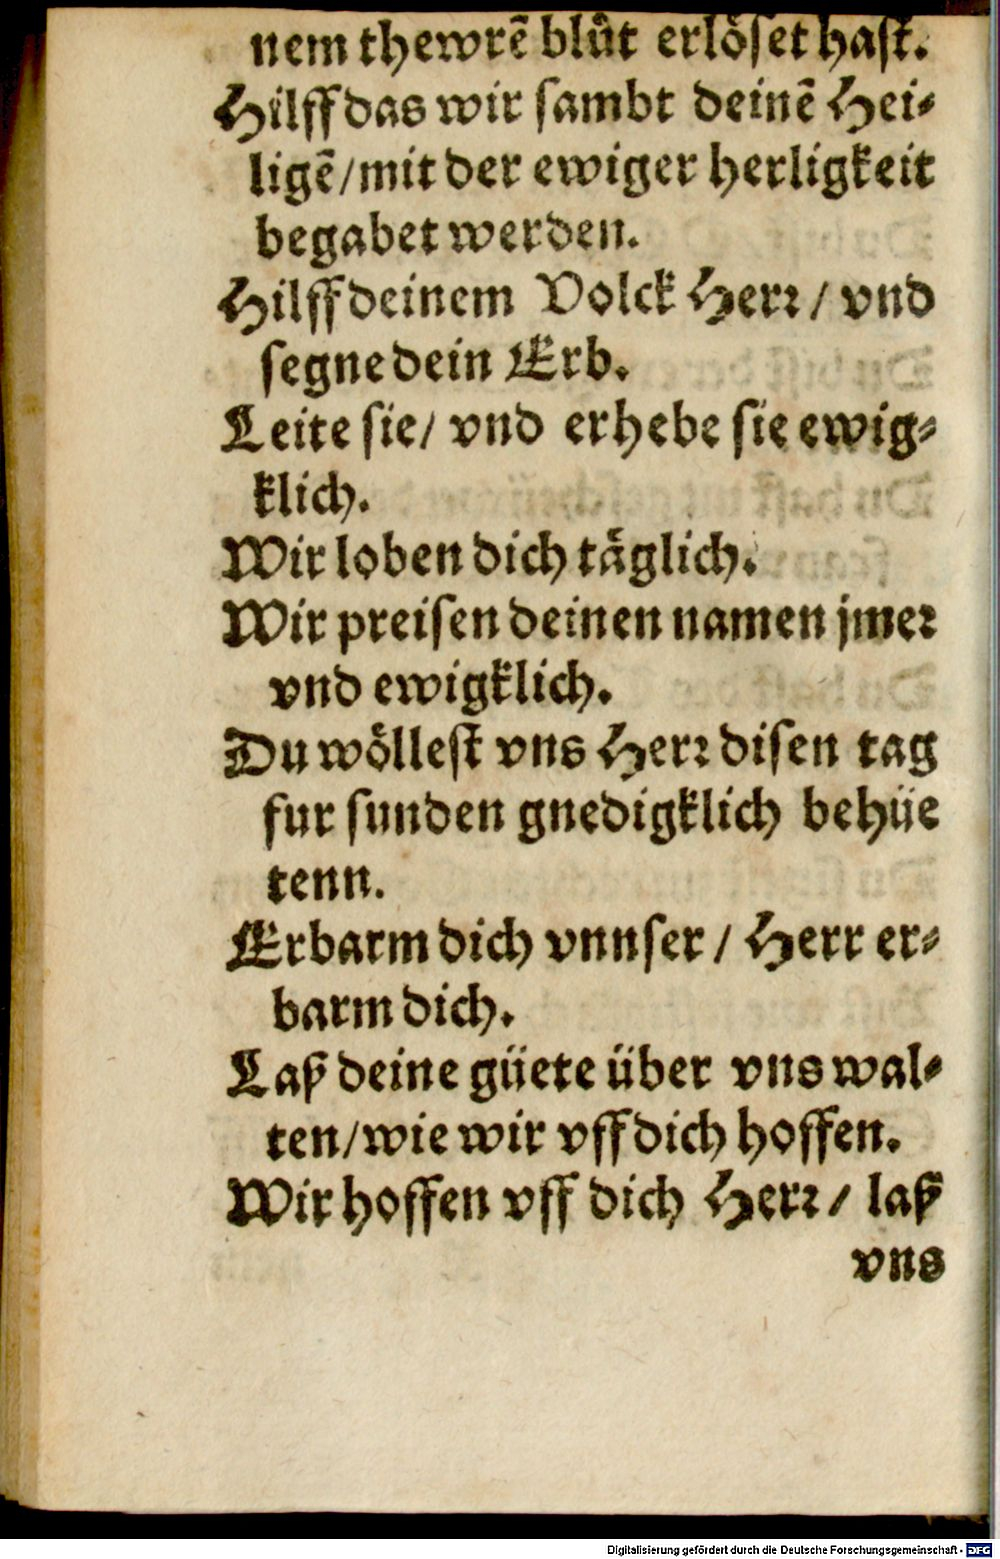 nem thewrē blůt erlöset hast.
Hilff das wir sambt deinē Hei⸗
ligē/mit der ewiger herligkeit
begabet werden.
Hilff deinem Volck Herr / vnd
segne dein Erb.
Leite sie/ vnd erhebe sie ewig⸗
klich.
Wir loben dich täglich.
Wir preisen deinen namen jmer
vnd ewigklich.
Du wöllest vns Herr disen tag
fur sunden gnedigklich behüe
tenn.
Erbarm dich vnnser / Herr er⸗
barm dich.
Laß deine güete über vns wal⸗
ten/wie wir vff dich hoffen.
Wir hoffen vff dich Herr / laß
vns
Digitalisierung gefördert durch die Deutsche Forschungsgemeinschaft - DFG